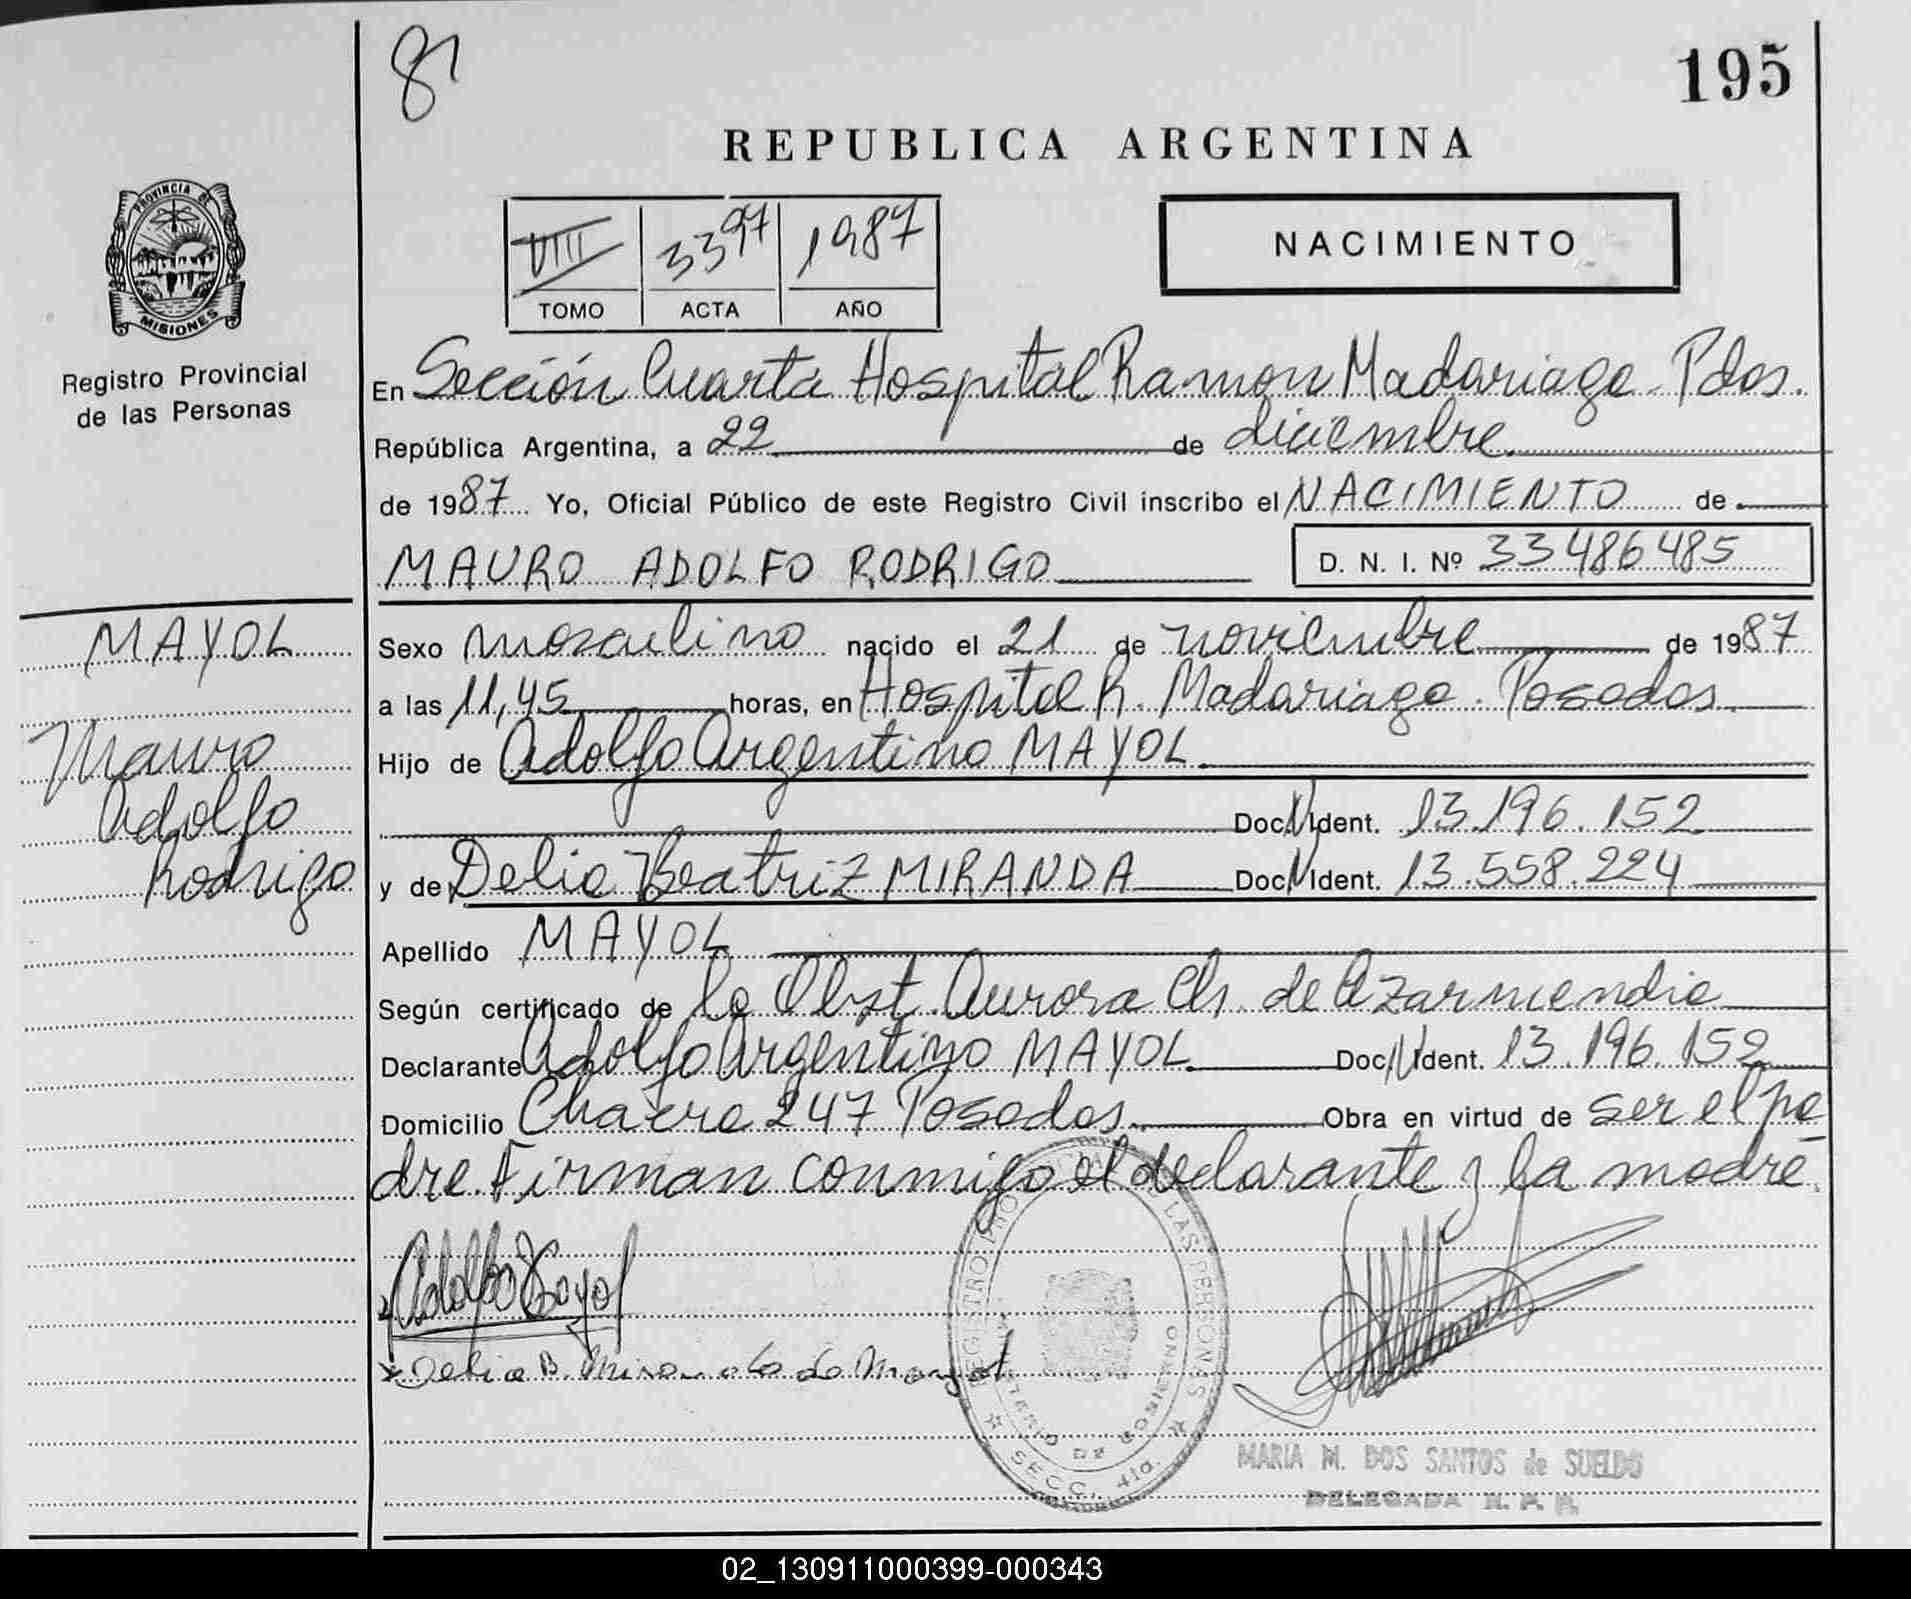 81
195
REPUBLICA ARGENTINA
PROVINCIA DE
MISIONES
Registro Provincial
de las Personas
VIII 3397 1987
TOMO ACTA AÑO
NACIMIENTO
En Sección Cuarta Hospital Ramon Madariaga - Pdas.
República Argentina, a 22 de diciembre
de 1987 Yo, Oficial Público de este Registro Civil inscribo el NACIMIENTO de
MAURO ADOLFO RODRIGO D. N. I. Nº 33486485
MAYOL
Mauro
Adolfo
Rodrigo
Sexo masculino nacido el 21 de noviembre de 1987
a las 11,45 horas, en Hospital R. Madariaga - Posadas
Hijo de Adolfo Argentino MAYOL
Doc. N. Ident. 13.196.152
y de Delia Beatriz MIRANDA Doc. N. Ident. 13.558.224
Apellido MAYOL
Según certificado de la Obst. Aurora Ch. de Azarmendia
Declarante Adolfo Argentino MAYOL Doc. N. Ident. 13.196.152
Domicilio Chacra 247 Posadas Obra en virtud de ser el pa
dre. Firman conmigo el declarante y la madre.
Adolfo Mayol
Delia B. Miranda de Mayol
REGISTRO PROVINCIAL DE LAS PERSONAS
MINISTERIO DE GOBIERNO
SECC. 4ta.
MARIA M. DOS SANTOS de SUELDO
DELEGADA R. P. P.
02_130911000399-000343